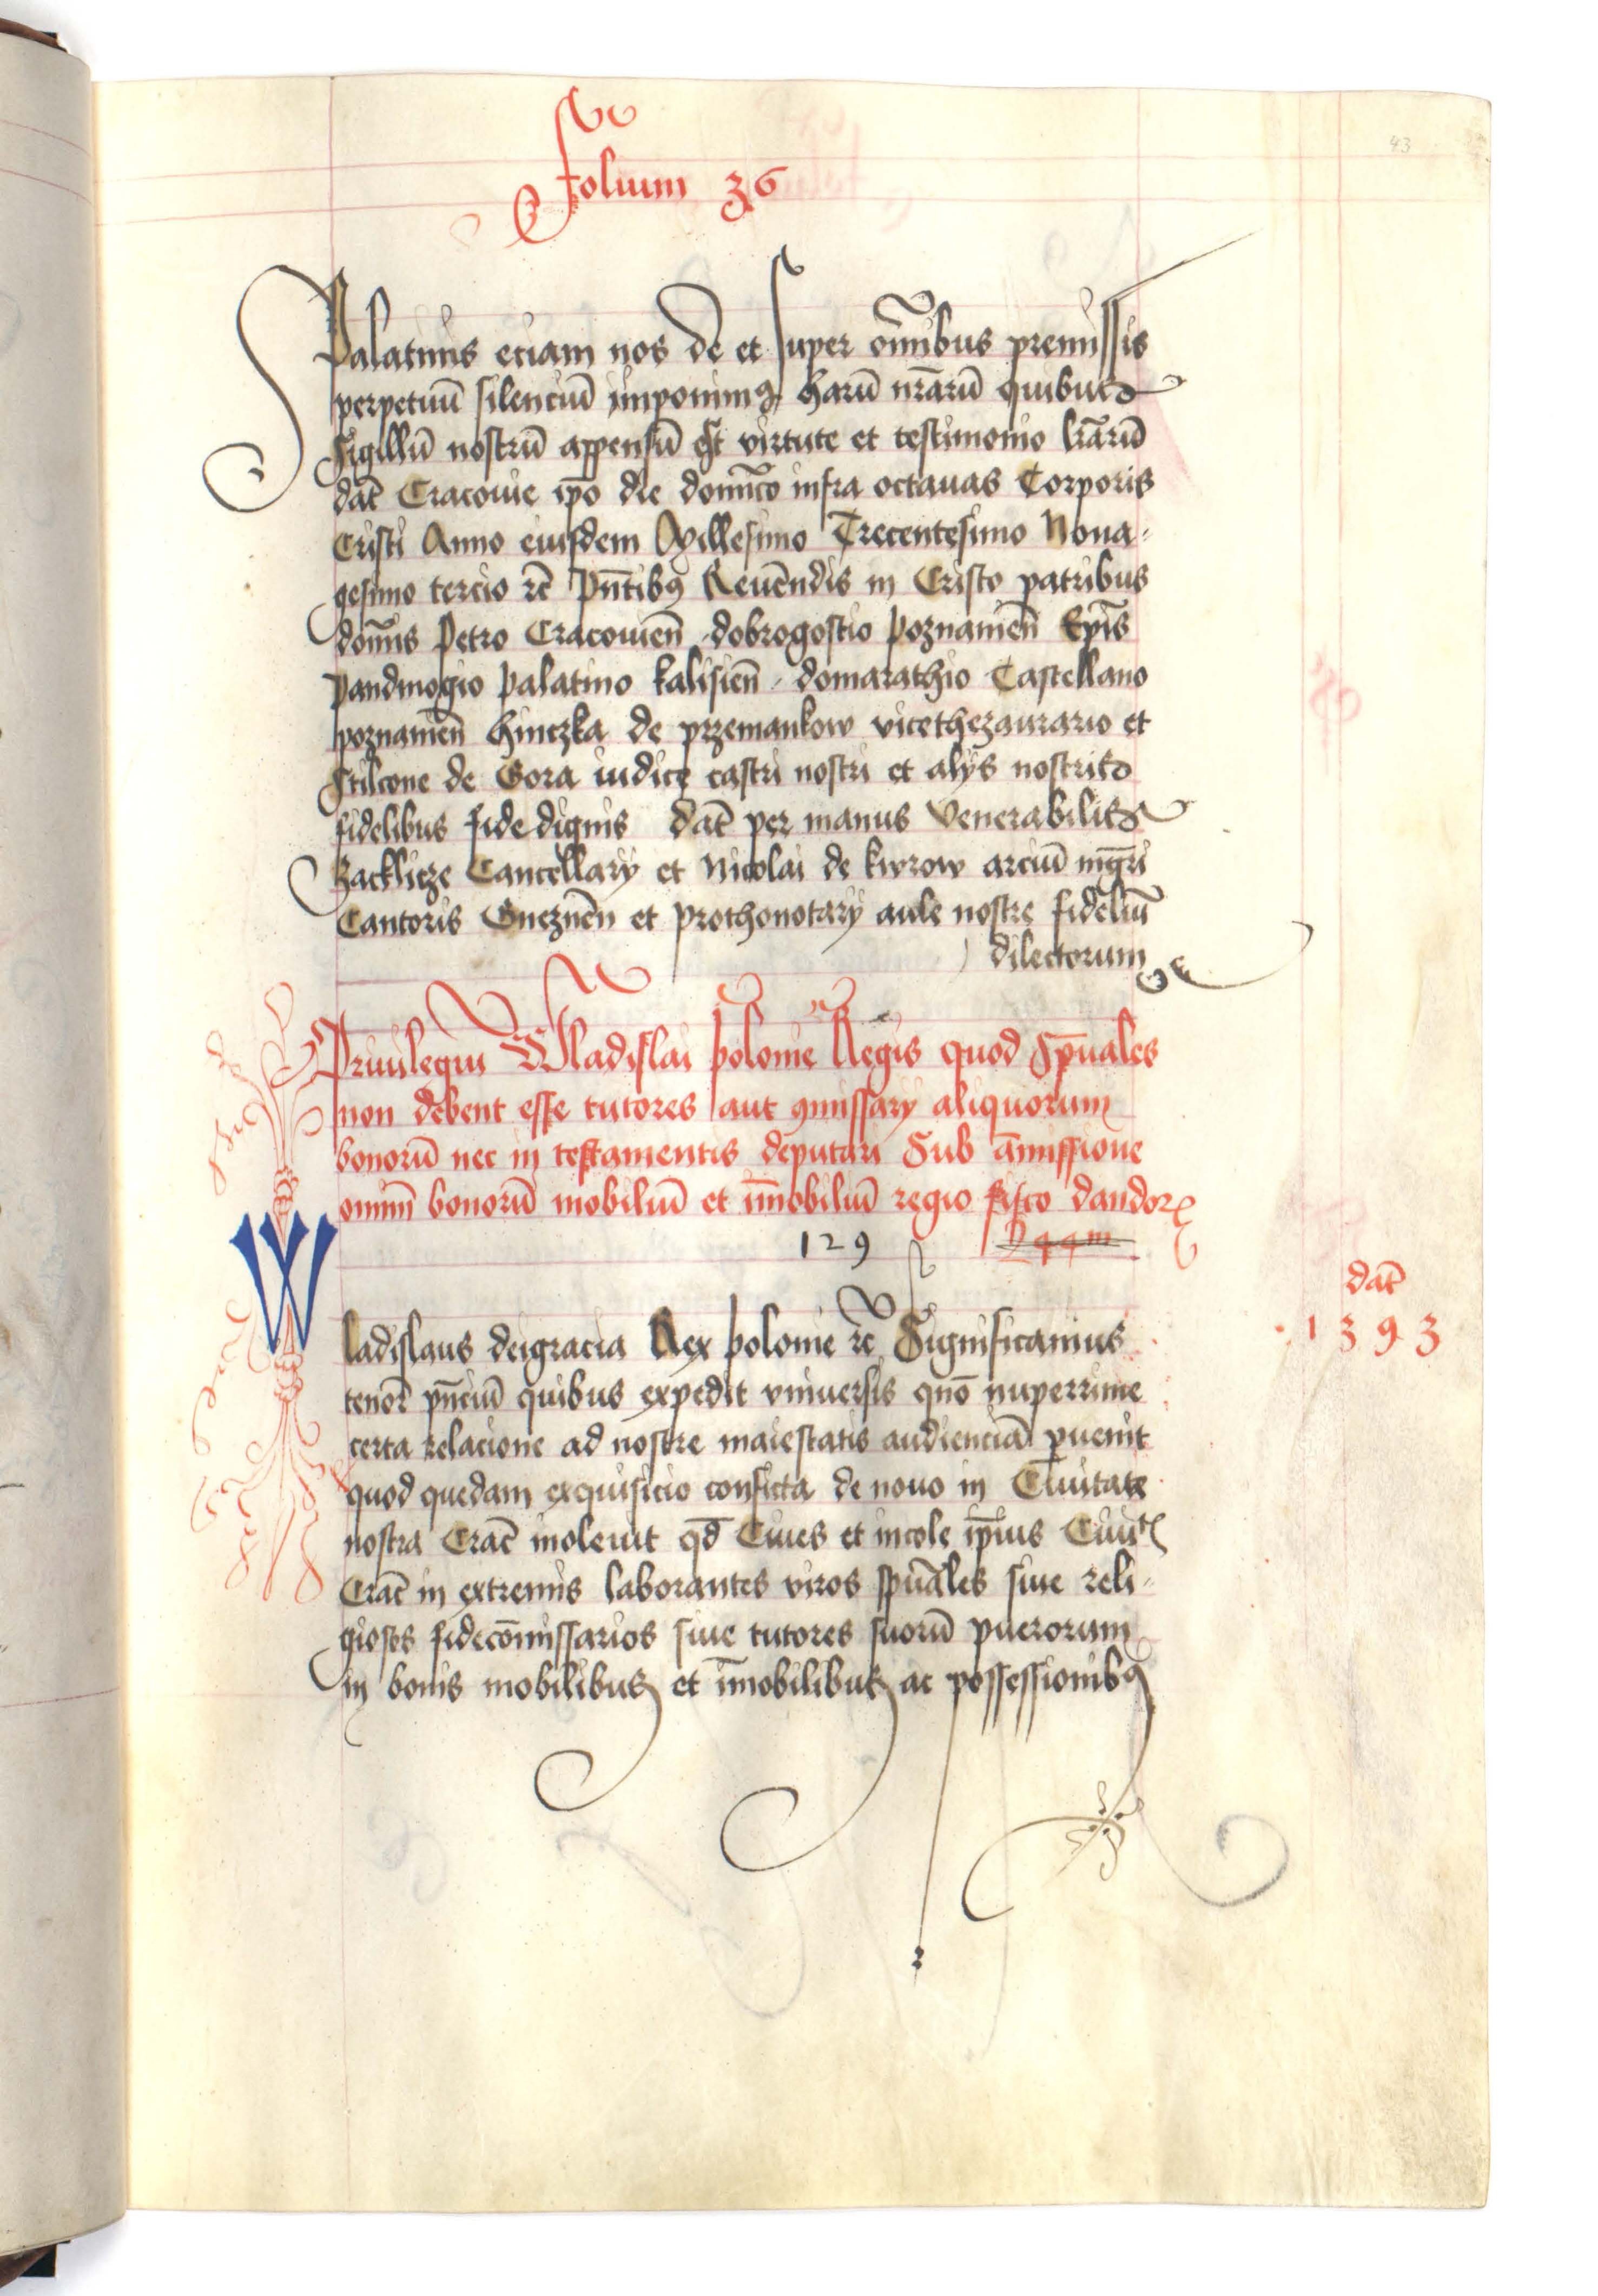 43
Folium 36
Palatinus eciam nos de et super om̄ibus premissis
perpetuū silenciū imponimꝯ harū nr̄arū quibus
sigillū nostrū appensū est virtute et testimonio lr̄arū
dat̄ Cracouie ip̄o die domīco infra octauas Corporis
Cristi Anno eiusdem Millesimo Trecentesimo Nona-
gesimo tercio rc̄ Pn̄tibꝯ Reuēndis in Cristo patribus
domīs Petro Cracouien̄ dobrogostio Poznanien̄ Ep̄is
Pandinogio Palatino kalisien̄ domarathio Castellano
poznanien̄ hinczka de przemankow vicethezaurario et
stilcone de Gora iudice castri nostri et alijs nostris
fidelibus fide dignis dat̄ per manus Venerabilis
Zacklicze Cancellarij et Nicolai de kwrow arciū mgr̄i
Cantoris Gneznen̄ et prothonotarij aule nostre fideliū
dilectorum
Priuilegiū Wladislai polonie Regis quod sp̄uales
non debent esse tutores aut ꝯmissarij aliquorum
bonorū nec in testamentis deputari Sub āmissione
omniū bonorū mobiliū et īmobiliū regio fisco dandorꝝ
129
dat̄
1393
Wladislaus deigracia Rex polonie rc̄ Significamus
tenor̄ pn̄ciū quibus expedit vniuersis quō nuperrime
certa relacione ad nostre maiestatis audienciā ꝑuenit
quod quedam exquisicio conficta de nouo in Ciuitate
nostra Crac̄ inoleuit qd̄ Ciues et incole ip̄ius Ciuit̄
Crac̄ in extremis laborantes viros sp̄uāles siue reli-
giosos fidecōmissarios siue tutores suorū puerorum
in bonis mobilibus et īmobilibus ac possessionibꝯ